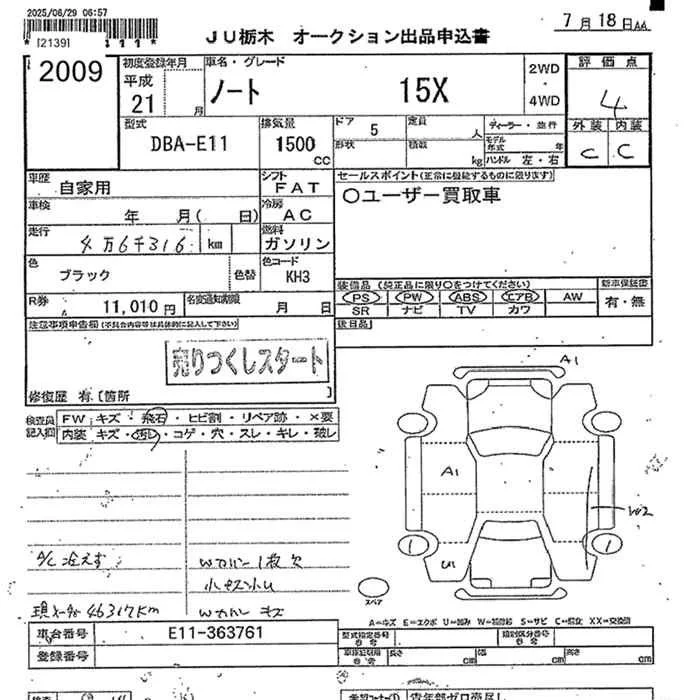 2025/06/29 06:57
7月18日
* [2139]
JU栃木 オークション出品申込書
2009
初度登録年月
平成
21 月
車名・グレード
ノート 15X
2WD
・
4WD
評価点
4
外装 内装
C C
型式
DBA-E11
排気量
1500
CC
ドア 5
形状
定員 人
積数 kg
ディーラー・並行
モデル年式 年
ハンドル 左・右
車歴 自家用
シフト FAT
セールスポイント(正常に機能するものに限ります)
〇ユーザー買取車
車検 年 月( 日)
冷房 AC
走行 4万6千316 km
燃料 ガソリン
色 ブラック
色替
色コード KH3
装備品(純正品に限り〇をつけてください)
PS PW ABS エアB AW
SR ナビ TV カワ
新車保証書
有・無
R券 11,010円
名変通知期限 月 日
後日品
注意事項申告欄(不具合内容等は具体的に記入して下さい)
売りつくしスタート
修復歴 有〔箇所 〕
検査員
記入欄
FW キズ・飛石・ヒビ割・リペア跡・×要
内装 キズ・汚れ・コゲ・穴・スレ・キレ・破レ
A1
A1
W2
U1
スペア
A/C冷えず
Wカバー1枚欠
現メーター46317Km
Wカバーキズ
A=キズ E=エクボ U=凹み S=サビ XX=交換済
車台番号 E11-363761
登録番号
型式指定番号
類別区分番号
長さ cm
幅 cm
高さ cm
青年部ゼロ売尽し